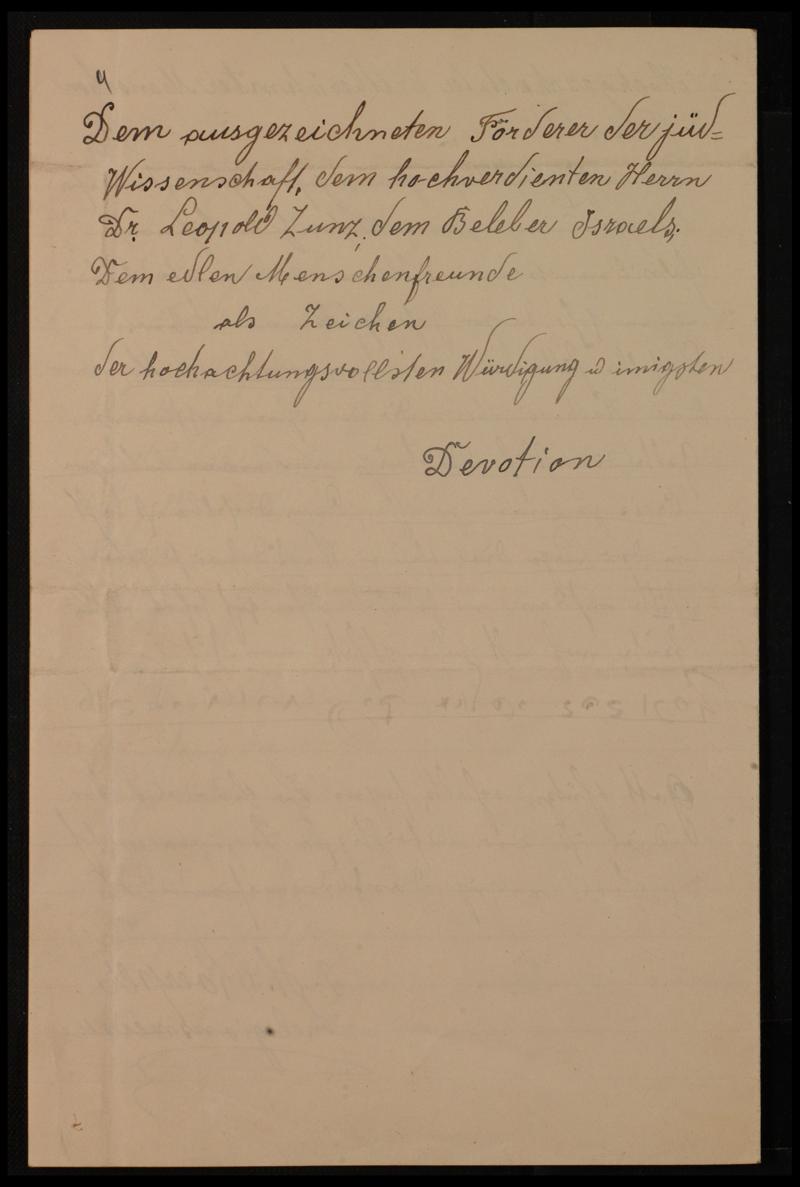 4
Dem ausgezeichneten Förderer der jüd=
Wissenschaft, dem hochverdienten Herrn
Dr. Leopold Zunz, dem Beleber Israels,
Dem edlen Menschenfreunde
als Zeichen
der hochachtungsvollsten Würdigung u innigsten
Devotion